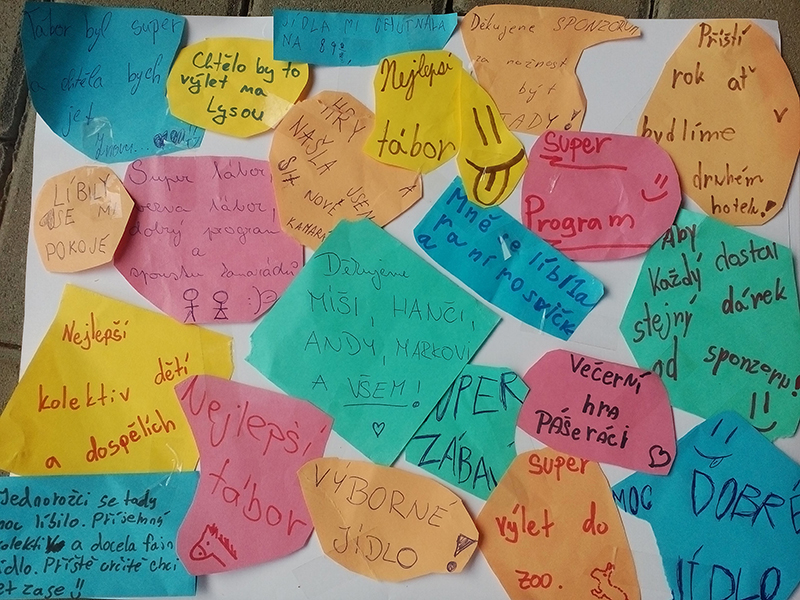 Tábor byl super
a chtěla bych
jet
Znovu...
Chtělo by to
výlet na
Lysou
JÍDLA MI CHUTNALA
NA 89%
Nejlepší
tábor
Děkujeme SPONZORUM
za možnost
být
TADY!
Příští
rok ať
bydlíme v
druhém
hotelu!
LÍBILY
SE MI
POKOJE
Super tábor,
dobrý program
a
spoustu kamarádů :)
HRY
NAŠLA
SI NOVÉ
KAMARÁ
super
Program
Mně se líbila
ranní rosnička
Aby
Každý dostal
stejný dárek
od sponzoru!
Nejlepší
kolektiv dětí
a dospělích
Děkujeme
MÍŠI, HANČI,
ANDY, MARKOVI
A VŠEM!
SUPER
ZÁBAVA
Večerní
hra
PAŠERÁCI
Nejlepší
tábor
Jednorožci se tady
moc líbilo. Příjemný
kolektiv a docela fajn
jídlo. Příště určitě chci
jet zase
VÝBORNÉ
JÍDLO
super
výlet do
zoo.
MOC
DOBRÉ
JÍDLO